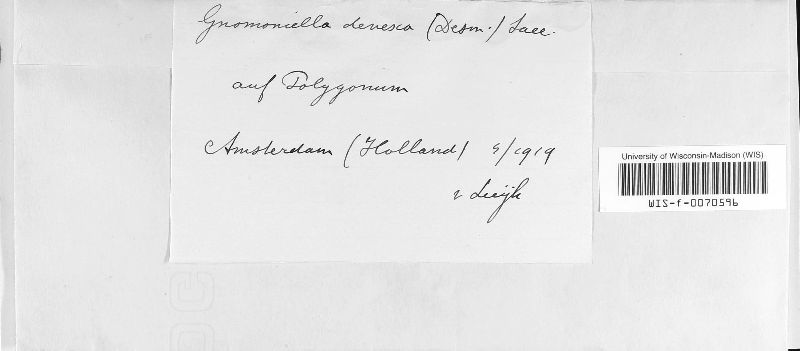 Gnomoniella devexa (Desm.) Sacc.
auf Polygonum
Amsterdam (Holland) 9/1919
v Luijk
University of Wisconsin-Madison (WIS)
WIS-f-0070596